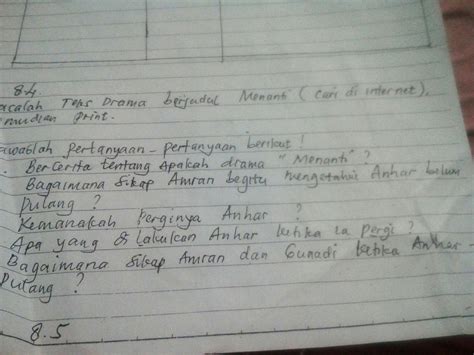 8.4
acalah Teks Drama berjudul Menanti (cari di internet),
mudian print.
awablah pertanyaan-pertanyaan berikut!
. Bercerita tentang Apakah drama "Menanti"?
Bagaimana sikap Amran begitu mengetahui Anhar belum
pulang?
Kemanakah perginya Anhar ?
Apa yang di lakukan Anhar ketika ia pergi?
Bagaimana sikap Amran dan Gunadi ketika Anhar
pulang ?
8.5